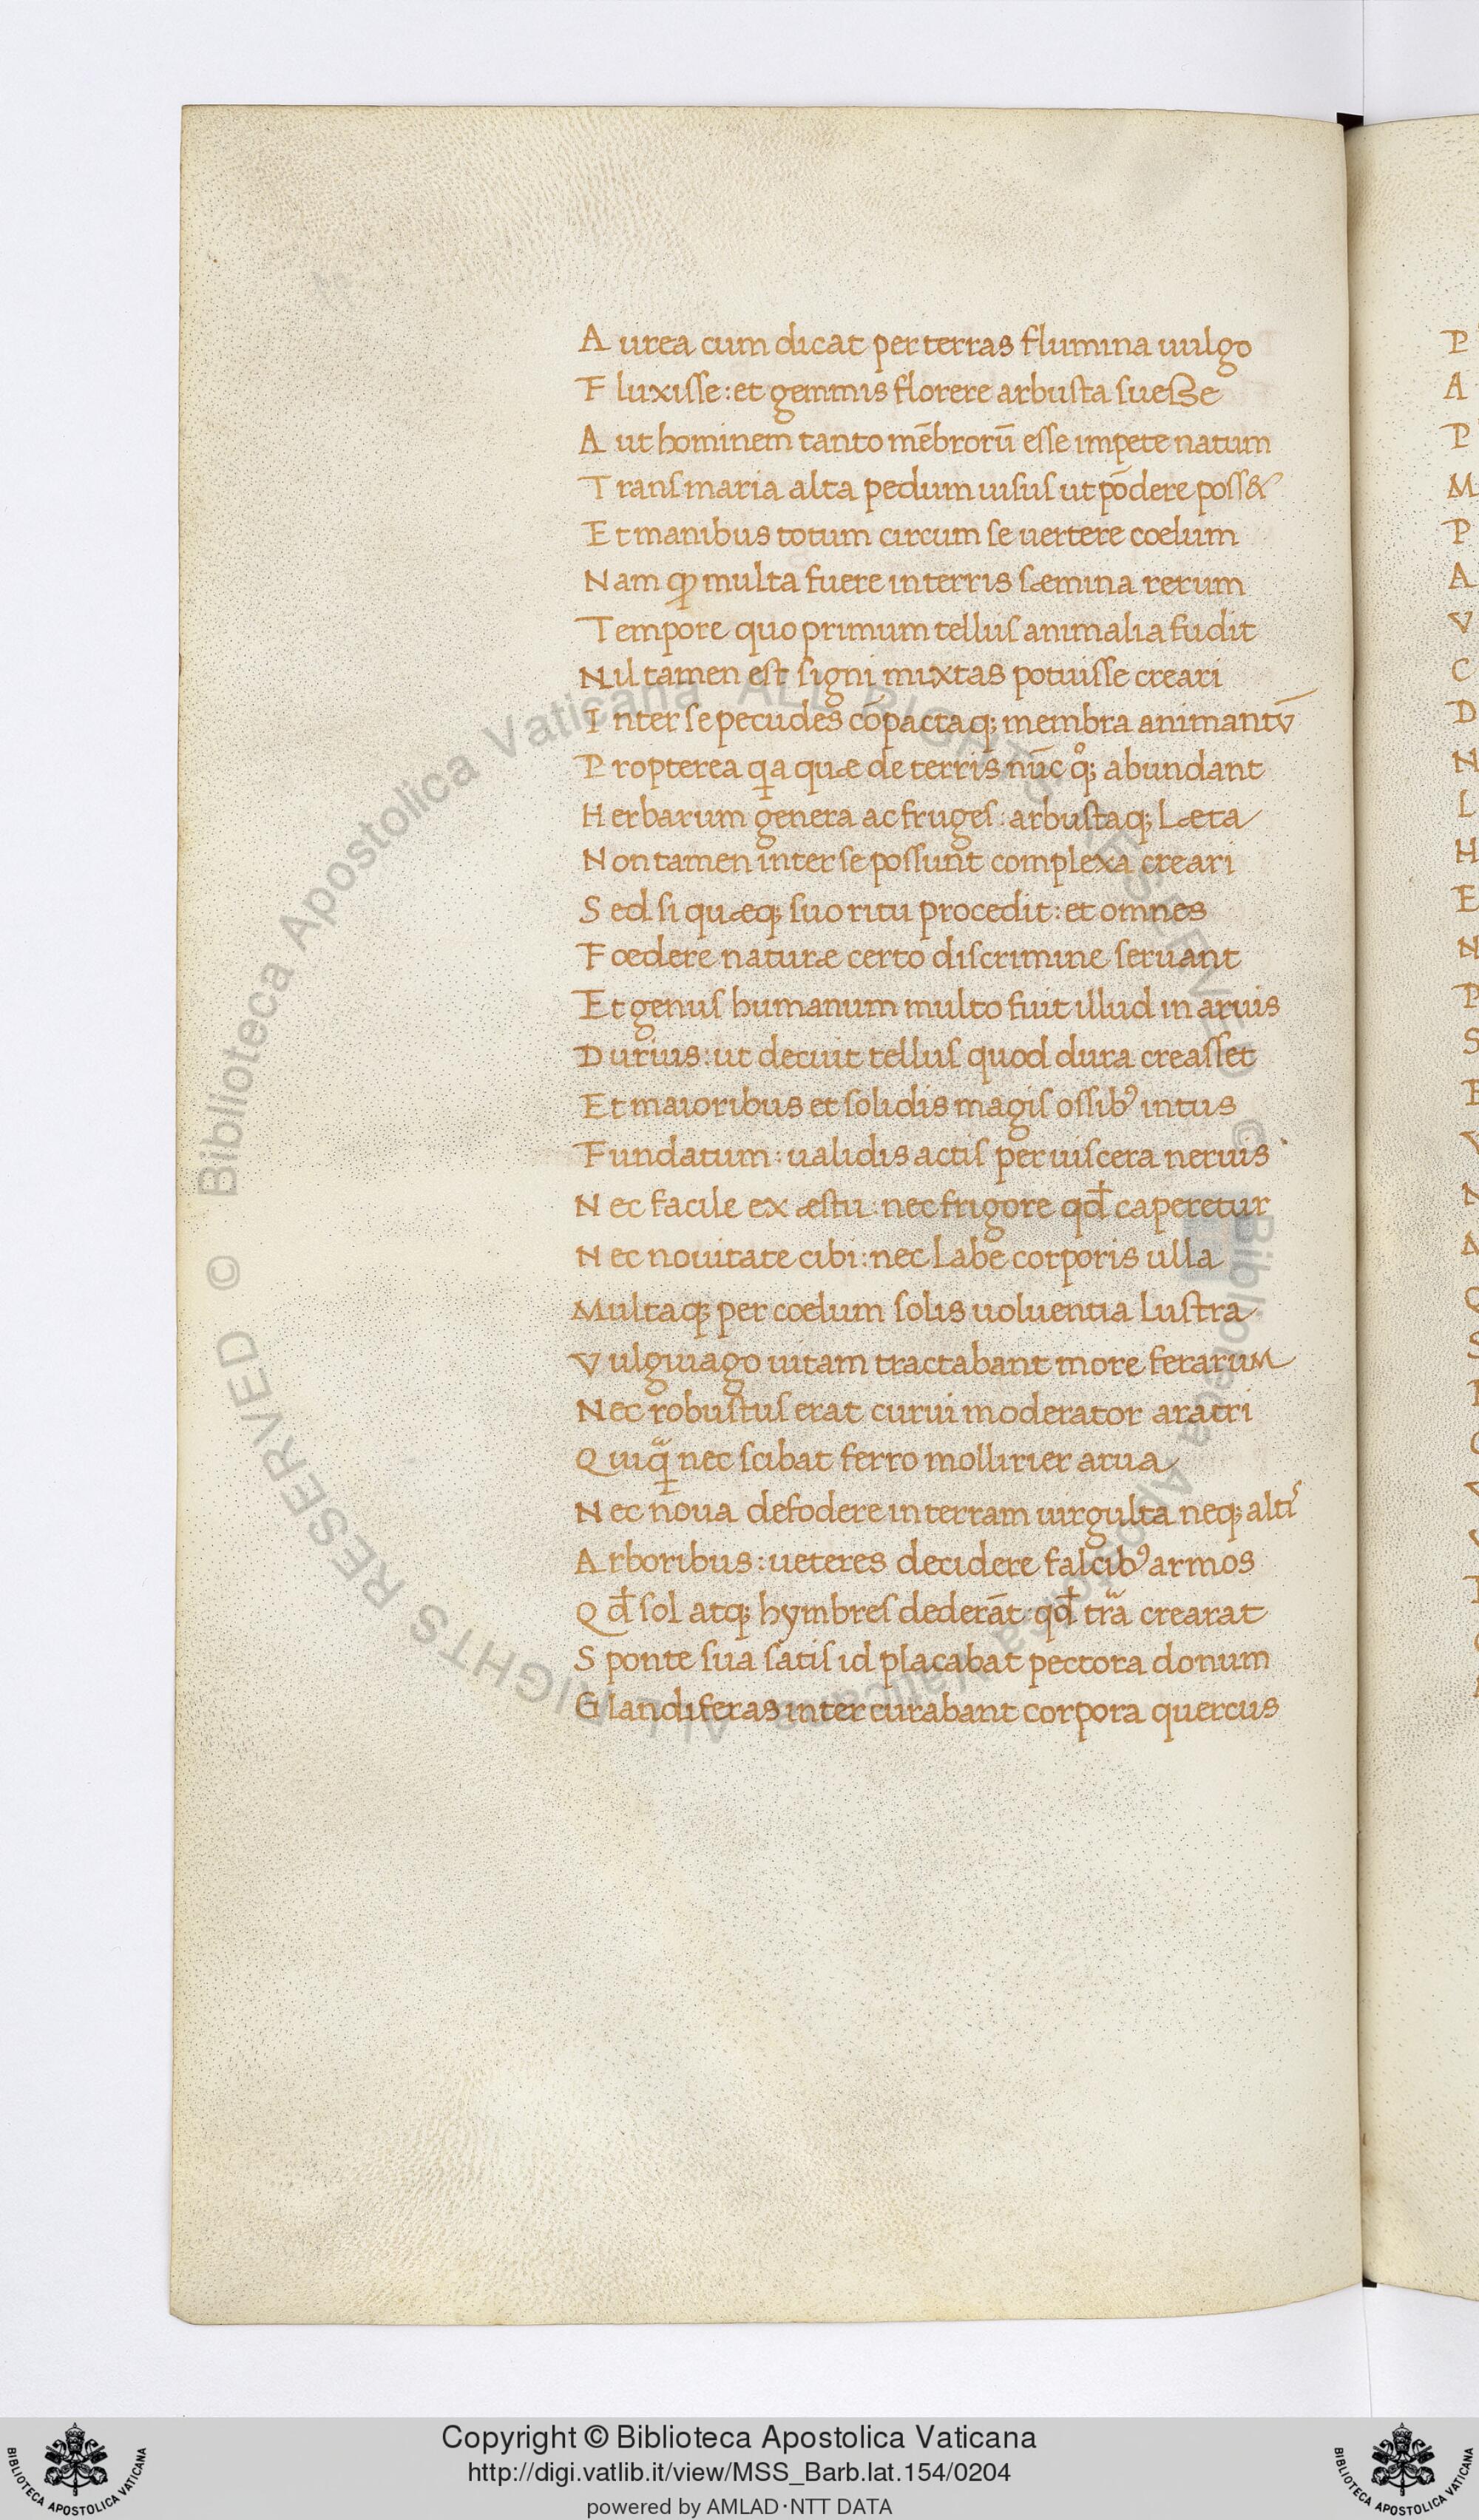 A urea cum dicat per terras flumina uulgo
F luxisse: et gemmis florere arbusta suesse
A ut hominem tanto mēbrorū esse impete natum
T rans maria alta pedum uisus ut pōdere poss&
E t manibus totum circum se uertere coelum
N am ꝙ multa fuere in terris sæmina rerum
T empore quo primum tellus animalia fudit
N il tamen est signi mixtas potuisse creari
I nter se pecudes cōpactaq; membra animantū
P ropterea ꝗa quæ de terris nūc qͦ; abundant
H erbarum genera ac fruges: arbustaq; læta
N on tamen inter se possunt complexa creari
S ed si quæq; suo ritu procedit: et omnes
F oedere naturæ certo discrimine seruant
E t genus humanum multo fuit illud in aruis
D urius: ut decuit tellus quod dura creasset
E t maioribus et solidis magis ossibꝰ intus
F undatum: ualidis actis per uiscera neruis
N ec facile ex æstu: nec frigore qđ caperetur
N ec nouitate cibi: nec labe corporis ulla
M ultaq; per coelum solis uoluentia lustra
V ulguiago uitam tractabant more ferarum
N ec robustus erat curui moderator aratri
Q uiꝗᷓ nec scibat ferro mollirier arua
N ec noua defodere in terram uirgulta neq; altis
A rboribus: ueteres decidere falcibꝰ armos
Q đ sol atq; hymbres dederāt: qđ trᷓa crearat
S ponte sua satis id placabat pectora donum
G landiferas inter curabant corpora quercus
P
A
P
M
P
A
V
C
D
N
L
H
E
N
P
S
Biblioteca Apostolica Vaticana ALL RIGHTS RESERVED ©
Biblioteca Apostolica Vaticana ALL RIGHTS RESERVED ©
Copyright © Biblioteca Apostolica Vaticana
http://digi.vatlib.it/view/MSS_Barb.lat.154/0204
powered by AMLAD·NTT DATA
BIBLIOTECA APOSTOLICA VATICANA
BIBLIOTECA APOSTOLICA VATICANA